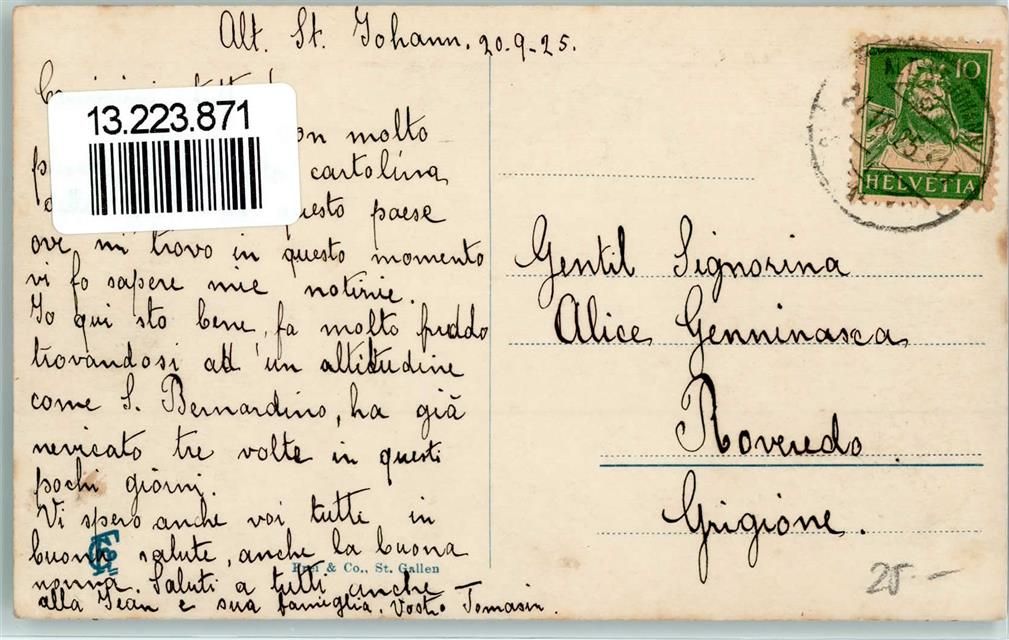 Alt. St. Johann. 20.9-25.
13.223.871
molto
cartolina
questo paese
ove mi trovo in questo momento
vi fo sapere mie notizie.
Io qui sto bene, fa molto freddo
trovandosi ad un altitudine
come S. Bernardino, ha già
nevicato tre volte in questi
pochi giorni.
Vi spero anche voi tutte in
buona salute, anche la buona
nonna. Saluti a tutti anche
alla Jean e sua famiglia. Vostro Tomasin.
& Co., St. Gallen
10
HELVETIA
Gentil Signorina
Alice Genninasca
Roveredo
Grigione.
25.-